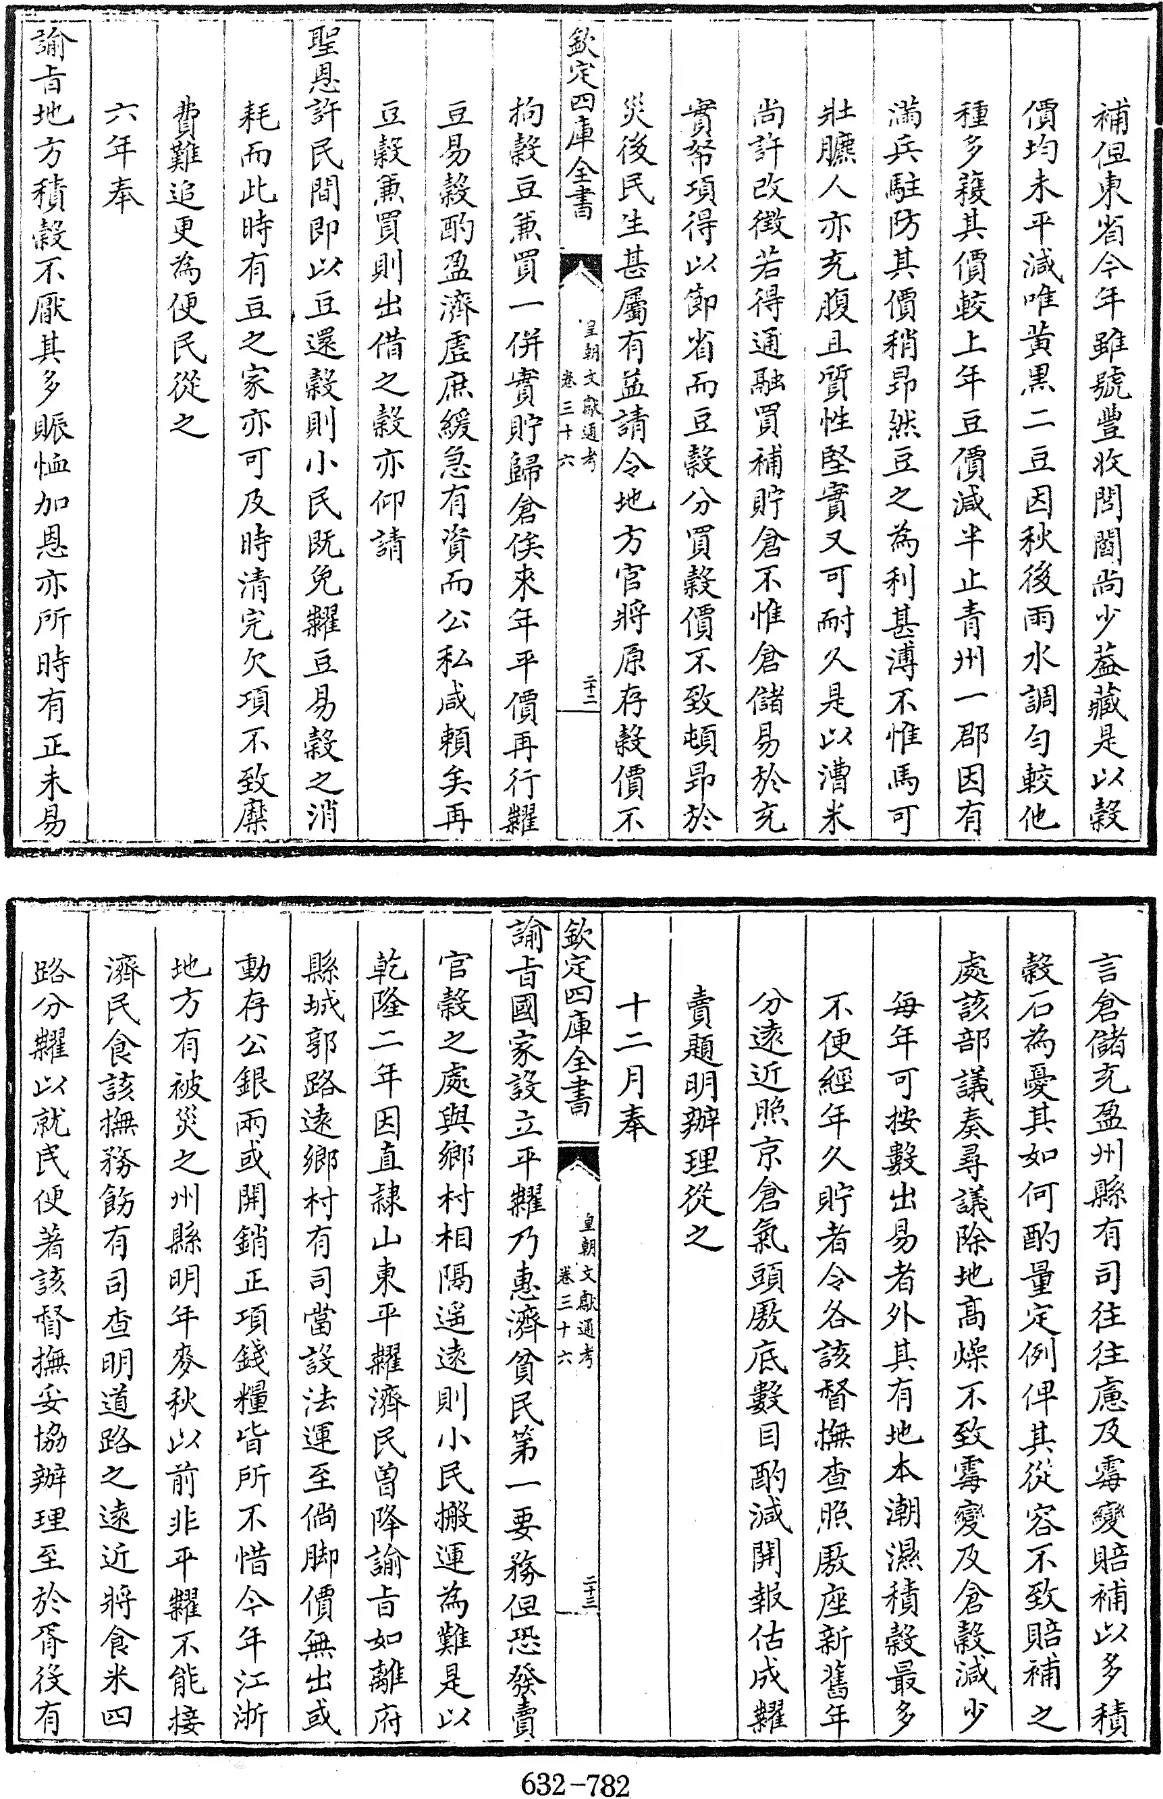 補但東省今年雖號豊收閭閻尚少葢藏是以榖
價均未平減唯黃黑二豆因秋後雨水調勻較他
種多穫其價較上年豆價減半止青州一郡因有
滿兵駐防其價稍昂然豆之為利甚溥不惟馬可
壯臕人亦充腹且質性堅實又可耐久是以漕米
尚許改徵若得通融買補貯倉不惟倉儲易於充
實帑項得以節省而豆榖分買榖價不致頓昂於
災後民生甚屬有益請令地方官將原存榖價不
欽定四庫全書
皇朝文獻通考
卷三十六
二十二
拘榖豆兼買一併實貯歸倉俟來年平價再行糶
豆易榖酌盈濟虛庶緩急有資而公私咸賴矣再
豆榖兼買則出借之榖亦仰請
聖恩許民間即以豆還榖則小民既免糶豆易榖之消
耗而此時有豆之家亦可及時清完欠項不致糜
費難追更為便民從之
六年奉
諭旨地方積榖不厭其多賑恤加恩亦所時有正未易
言倉儲充盈州縣有司往往慮及霉變賠補以多積
榖石為憂其如何酌量定例俾其從容不致賠補之
處該部議奏尋議除地高燥不致霉變及倉榖減少
每年可按數出易者外其有地本潮濕積榖最多
不便經年久貯者令各該督撫查照厫座新舊年
分遠近照京倉氣頭厫底數目酌減開報估成糶
賣題明辦理從之
十二月奉
欽定四庫全書
皇朝文獻通考
卷三十六
二十三
諭旨國家設立平糶乃惠濟貧民第一要務但恐發賣
官榖之處與鄉村相隔遙遠則小民搬運為難是以
乾隆二年因直隸山東平糶濟民曾降諭旨如離府
縣城郭路遠鄉村有司當設法運至倘脚價無出或
動存公銀兩或開銷正項錢糧皆所不惜今年江浙
地方有被災之州縣明年麥秋以前非平糶不能接
濟民食該撫務飭有司查明道路之遠近將食米四
路分糶以就民便著該督撫妥協辦理至於胥役有
632-782